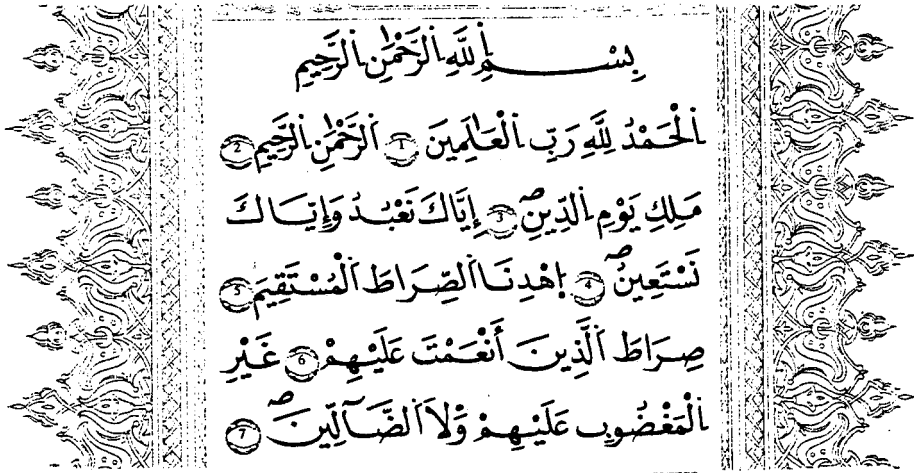 بِسْمِ اللَّهِ الرَّحْمَٰنِ الرَّحِيمِ
اَلْحَمْدُ لِلَّهِ رَبِّ اِلْعَٰلَمِينَ 1 اَلرَّحْمَٰنِ اِلرَّحِيمِ 2
مَلِكِ يَوْمِ اِلدِّينِ 3 إِيَّاكَ نَعْبُدُ وَإِيَّاكَ
نَسْتَعِينُ 4 اِهْدِنَا اَلصِّرَاطَ اَلْمُسْتَقِيمَ 5
صِرَاطَ اَلَّذِينَ أَنْعَمْتَ عَلَيْهِمْ 6 غَيْرِ
اِلْمَغْضُوبِ عَلَيْهِمْ وَلَا اَلضَّآلِّينَ 7